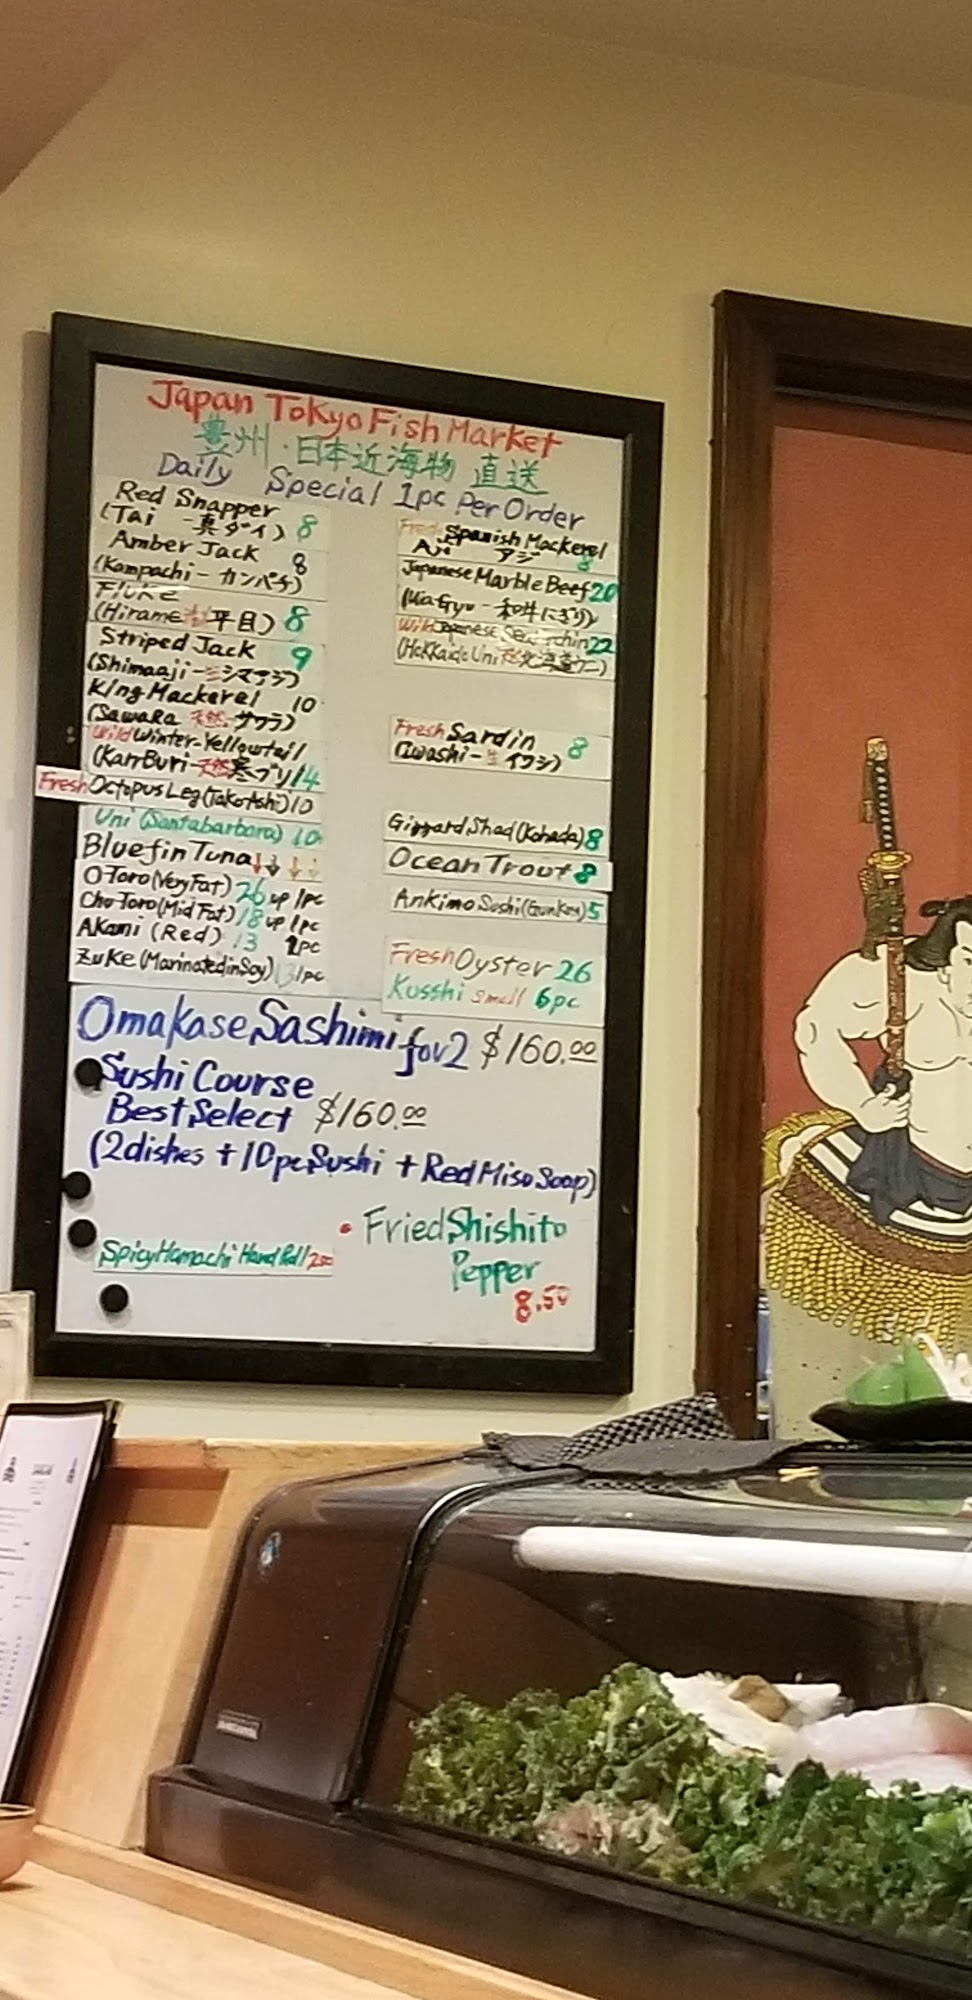 Japan Tokyo Fish Market
豊州・日本近海物 直送
Daily Special 1pc Per Order
Red Snapper
(Tai - 真ダイ) 8
Amber Jack 8
(Kampachi - カンパチ)
Fluke
(Hirame 平目) 8
Striped Jack 9
(Shimaaji - シマアジ)
King Mackerel 10
(Sawara 天然 サワラ)
Wild Winter-Yellowtail
(KanBuri-天然寒ブリ) 14
Fresh Octopus Leg (TakoAshi) 10
Uni (Santabarbara) 10
Bluefin Tuna ↓↓↓↓
O Toro (Very Fat) 26 up 1pc
Chu Toro (Mid Fat) 18 up 1pc
Akami (Red) 13 1pc
Zuke (Marinated in Soy) 13 1pc
Fresh Spanish Mackerel
Aji アジ 8
Japanese Marble Beef 20
(Wa Gyu - 和牛にぎり)
Wild Japanese Sea Urchin 22
(Hokkaido Uni 天然北海道ウニ)
Fresh Sardin 8
(Iwashi - イワシ)
Gizzard Shad (Kohada) 8
Ocean Trout 8
Ankimo Sushi (Gunkan) 5
Fresh Oyster 26
Kusshi small 6pc
Omakase Sashimi for 2 $160.00
Sushi Course
Best Select $160.00
(2dishes + 10pc Sushi + Red Miso Soap)
• Fried Shishito
Pepper
8.50
Spicy Hamachi Hand Roll